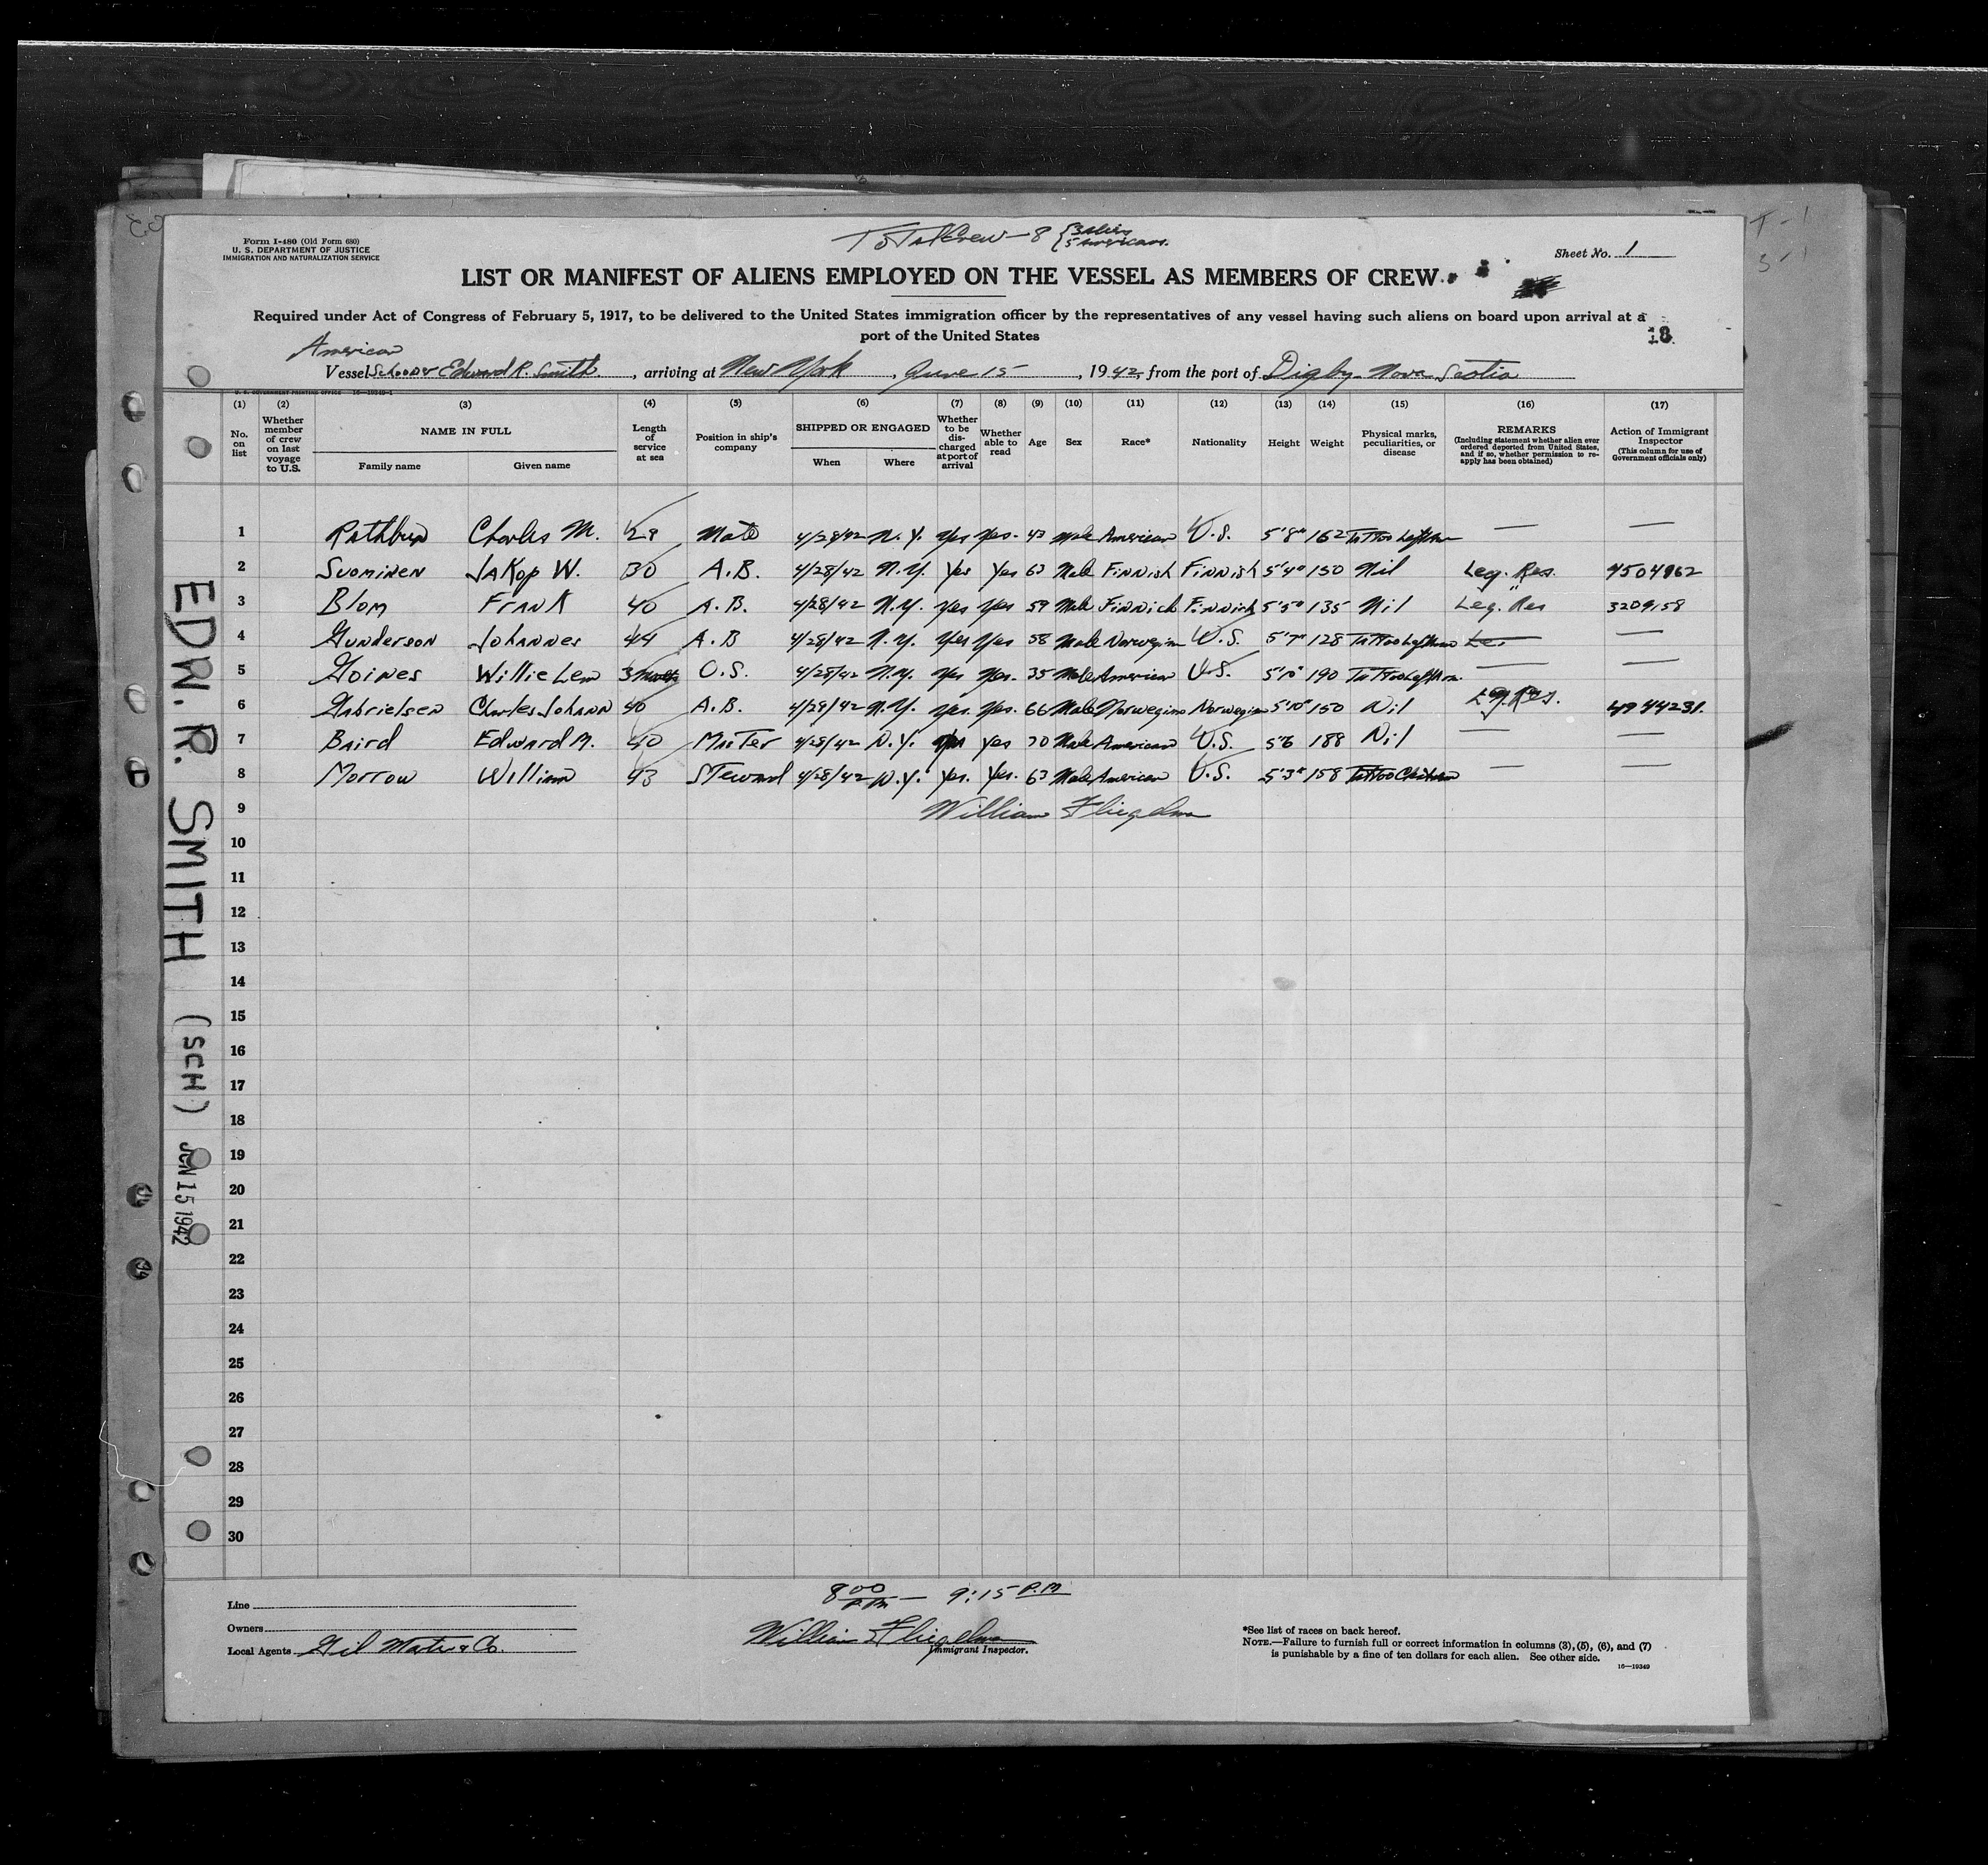 Form I-480 (Old Form 680)
U. S. DEPARTMENT OF JUSTICE
IMMIGRATION AND NATURALIZATION SERVICE
Total Crew - 8 { 3 Aliens
5 Americans.
Sheet No. 1
LIST OR MANIFEST OF ALIENS EMPLOYED ON THE VESSEL AS MEMBERS OF CREW
Required under Act of Congress of February 5, 1917, to be delivered to the United States immigration officer by the representatives of any vessel having such aliens on board upon arrival at a
port of the United States
18
American
Vessel Schooner Edward R. Smith, arriving at New York, June 15, 1942, from the port of Digby Nova Scotia
U. S. GOVERNMENT PRINTING OFFICE 16—19349-1
(1) (2) (3) (4) (5) (6) (7) (8) (9) (10) (11) (12) (13) (14) (15) (16) (17)
No. on list
Whether member of crew on last voyage to U.S.
NAME IN FULL
Family name Given name
Length of service at sea
Position in ship's company
SHIPPED OR ENGAGED
When Where
Whether to be discharged at port of arrival
Whether able to read
Age
Sex
Race*
Nationality
Height
Weight
Physical marks, peculiarities, or disease
REMARKS
(Including statement whether alien ever ordered deported from United States, and if so, whether permission to reapply has been obtained)
Action of Immigrant Inspector
(This column for use of Government officials only)
1 Rathbun Charles M. 28 Mate 4/28/42 N.Y. Yes Yes. 43 Male American U.S. 5'8" 162 Tattoo Left Arm — —
2 Suominen Jakop W. 30 A.B. 4/28/42 N.Y. Yes Yes 63 Male Finnish Finnish 5'4" 150 Nil Leg. Res. 4504962
3 Blom Frank 40 A.B. 4/28/42 N.Y. Yes Yes 59 Male Finnish Finnish 5'5" 135 Nil Leg. Res 3209158
4 Gunderson Johannes 44 A.B 4/28/42 N.Y. Yes Yes 58 Male Norwegian U.S. 5'7" 128 Tattoo Left Arm —
5 Goines Willie Lem 3 Months O.S. 4/28/42 N.Y. Yes Yes. 35 Male American U.S. 5'10" 190 Tattoo Left Arm. — —
6 Gabrielsen Charles Johann 40 A.B. 4/28/42 N.Y. Yes. Yes. 66 Male Norwegian Norwegian 5'10" 150 Nil Leg. Res. 4944231.
7 Baird Edward M. 40 Master 4/28/42 N.Y. Yes 70 Male American U.S. 5'6 188 Nil — —
8 Morrow William 43 Steward 4/28/42 N.Y. Yes. Yes. 63 Male American U.S. 5'3" 158 Tattoo — —
9 William Fliegelman
10
11
12
13
14
15
16
17
18
19
20
21
22
23
24
25
26
27
28
29
30
EDW. R. SMITH (SCH) JUN 15 1942
8 00 P.M — 9:15 P.M
Line
Owners
Local Agents
William Fliegelman
Immigrant Inspector.
*See list of races on back hereof.
NOTE.—Failure to furnish full or correct information in columns (3), (5), (6), and (7)
is punishable by a fine of ten dollars for each alien. See other side.
16—19349